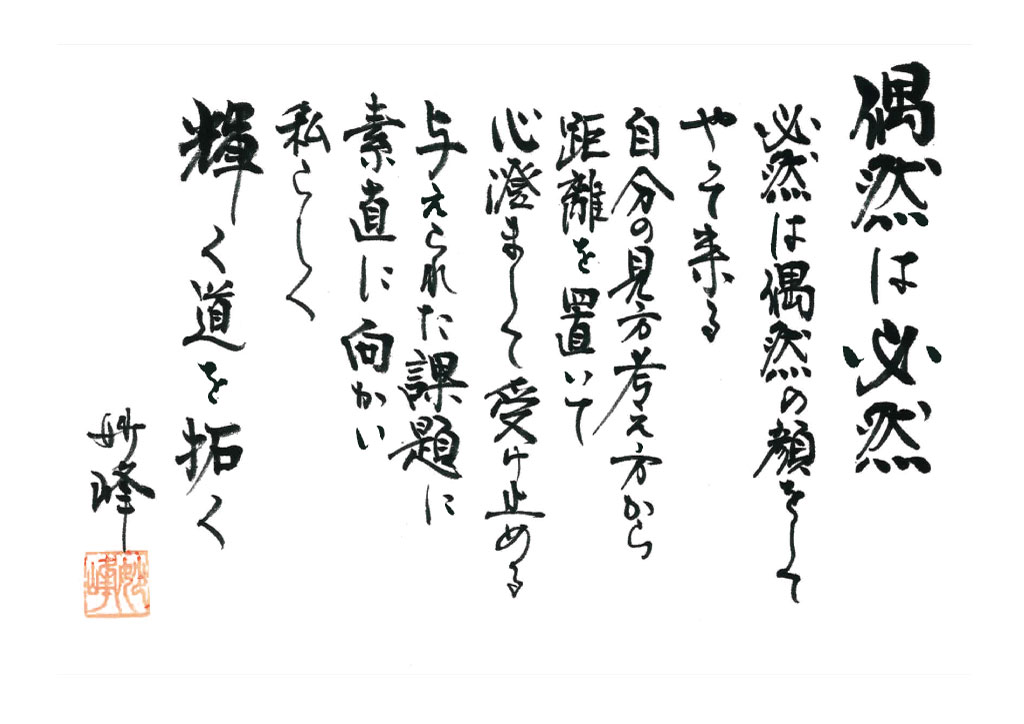 偶然は必然
必然は偶然の顔をして
やって来る
自分の見方考え方から
距離を置いて
心澄まして受け止める
与えられた課題に
素直に向かい
私らしく
輝く道を拓く
妙峰
妙峰